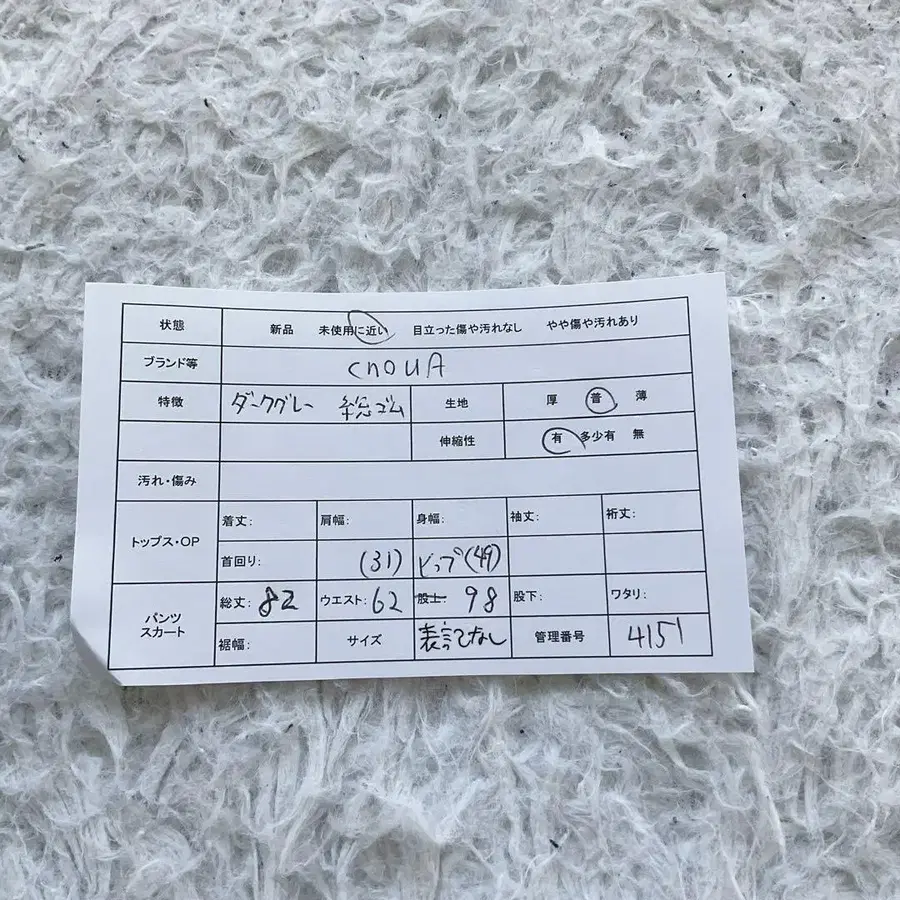 状態 新品 未使用に近い 目立った傷や汚れなし やや傷や汚れあり
ブランド等 cnouA
特徴 ダークグレー 総ゴム 生地 厚 普 薄
伸縮性 有 多少有 無
汚れ・傷み
トップス・OP 着丈: 肩幅: 身幅: 袖丈: 裄丈:
首回り: (31) ヒップ(49)
パンツ スカート 総丈: 82 ウエスト: 62 股上: 98 股下: ワタリ:
裾幅: サイズ 表記なし 管理番号 4151